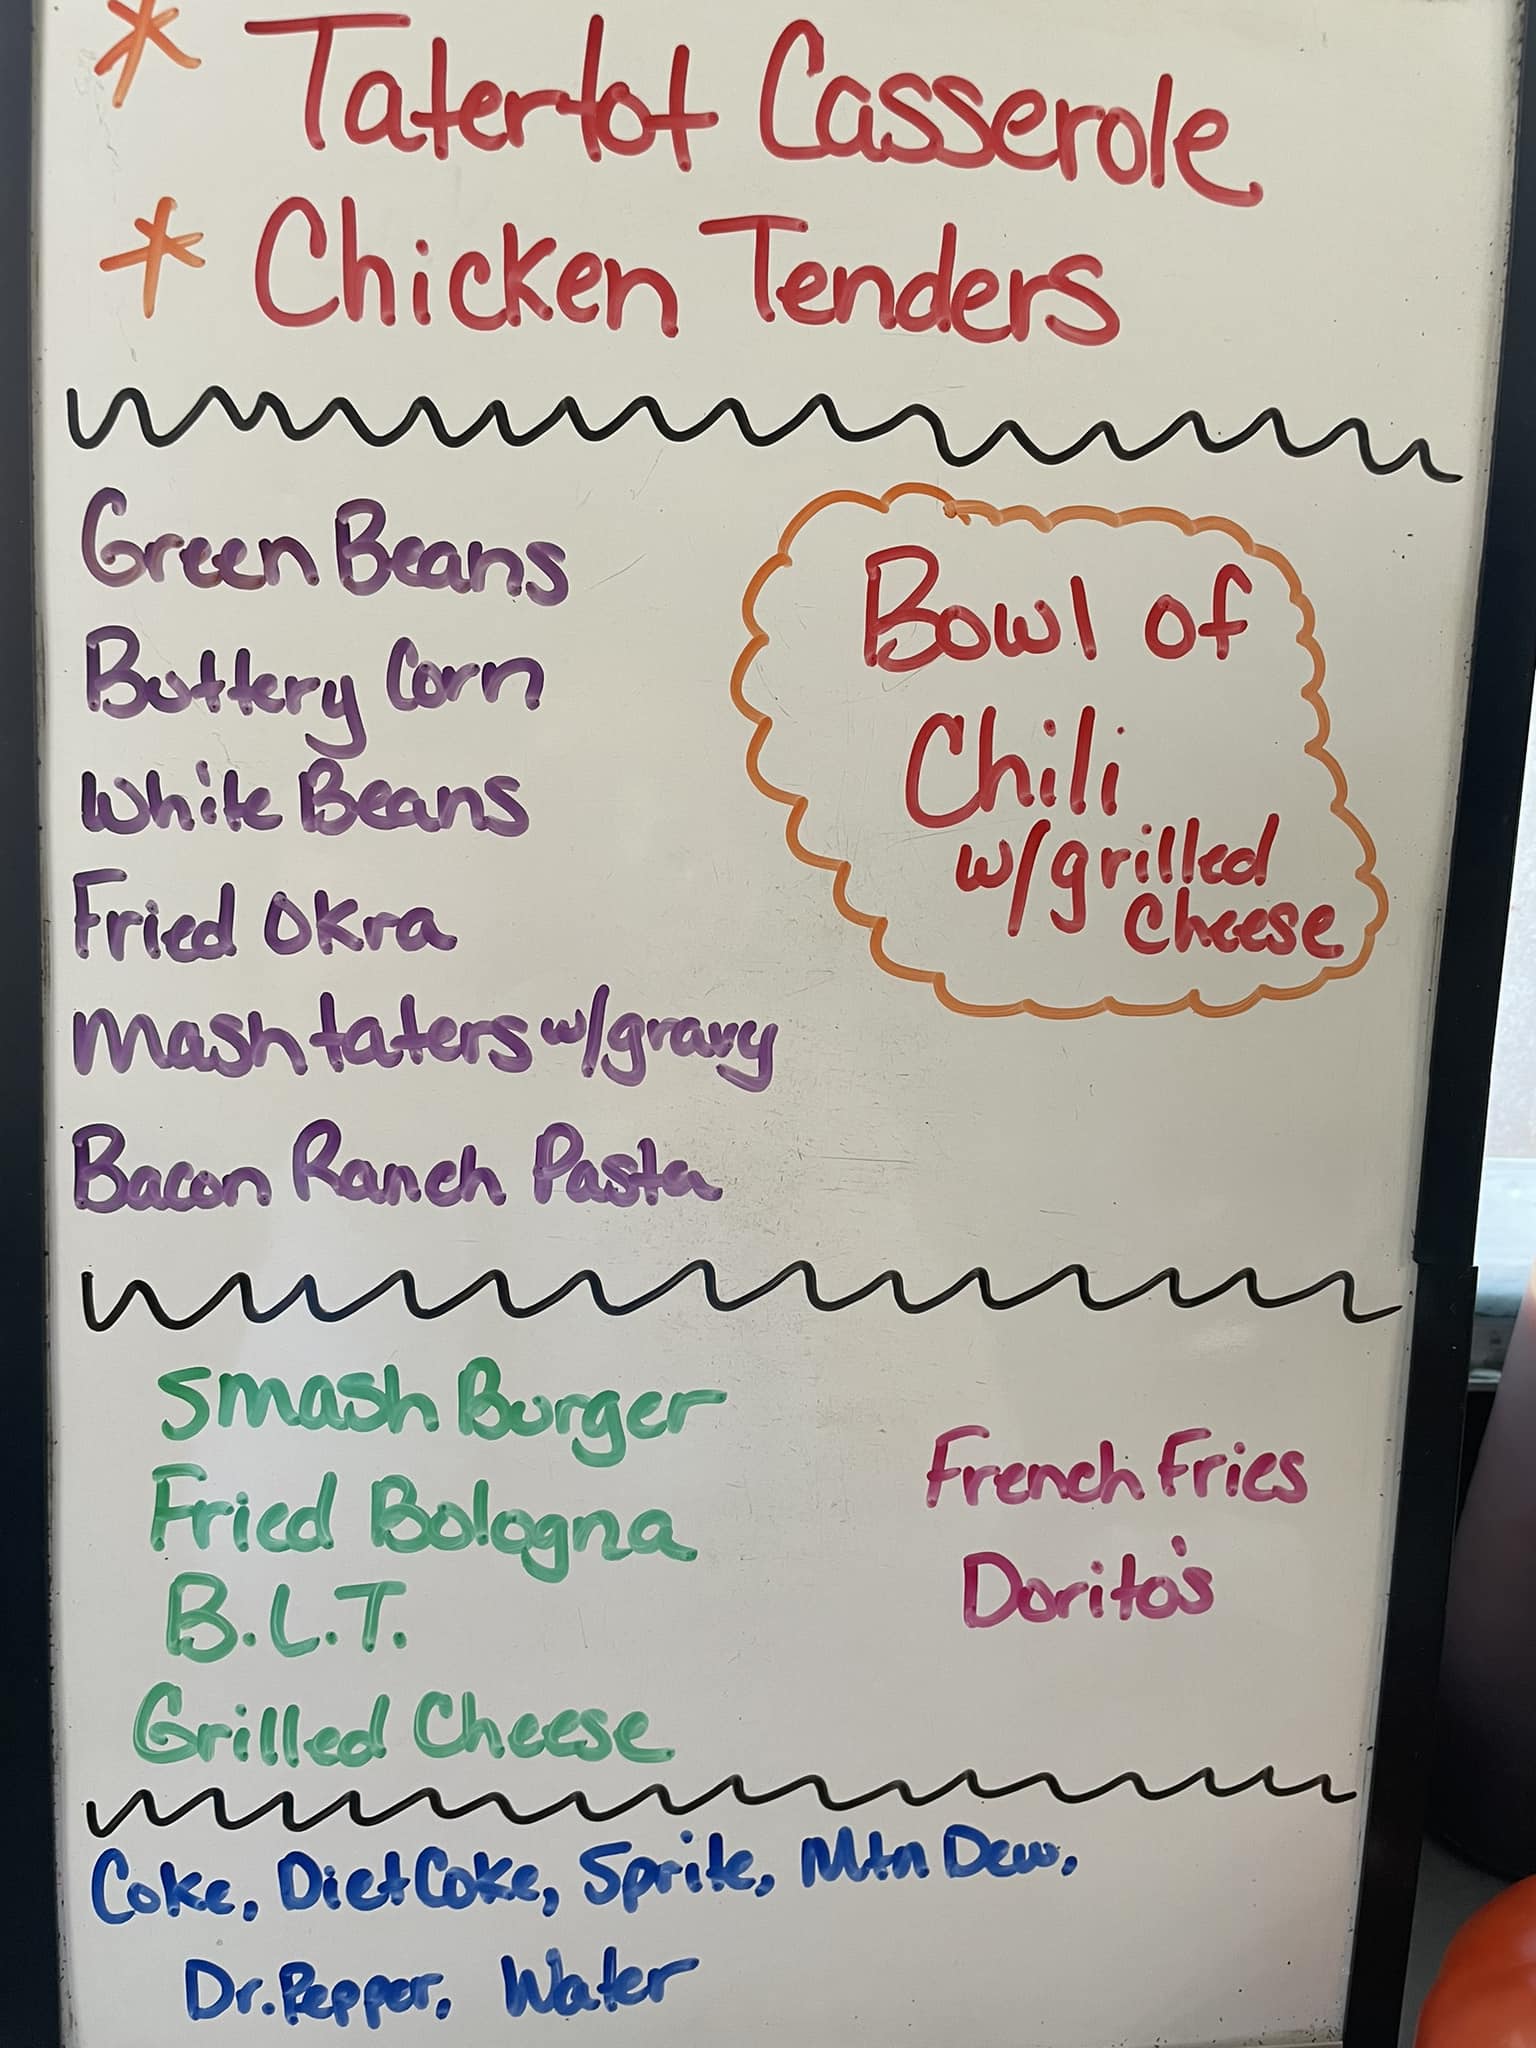 * Tatertot Casserole
* Chicken Tenders
Green Beans
Buttery Corn
White Beans
Fried Okra
Mash taters w/gravy
Bacon Ranch Pasta
Bowl of
Chili
w/grilled
cheese
Smash Burger
Fried Bologna
B.L.T.
Grilled Cheese
French Fries
Dorito's
Coke, Diet Coke, Sprite, Mtn Dew,
Dr. Pepper, Water